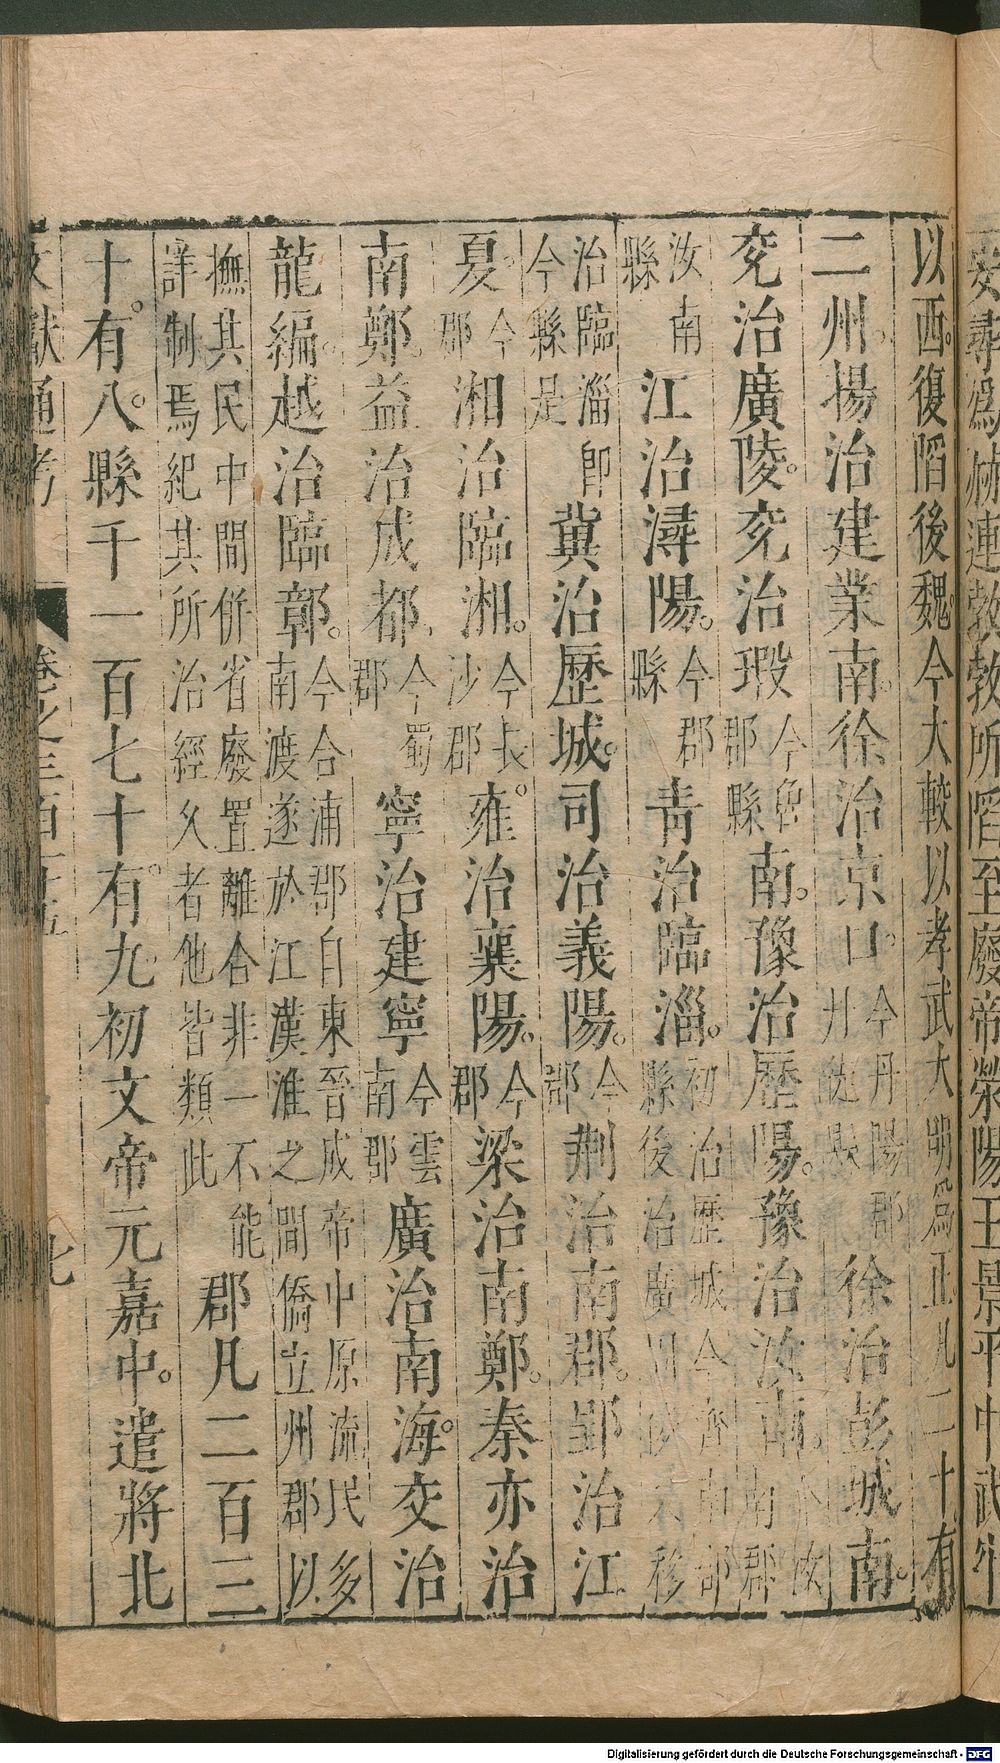 以西。復䧟後魏。今大較以孝武大明為正凡二十有
二州。揚治建業南。徐治京口。今丹陽郡丹徒縣徐治彭城南。
兗治廣陵。兗治瑕今魯郡縣南。豫治歷陽。豫治汝南。今汝南郡
汝南縣江治潯陽。今郡縣青治臨淄。初治歷城今齊南郡縣後治廣川或又移
治臨淄即今縣是冀治歷城。司治義陽。今郡荆治南郡。郢治江
夏。今郡湘治臨湘。今長沙郡雍。治襄陽。今郡梁治南鄭。秦亦治
南鄭。益治成都。今蜀郡寧治建寧今雲南郡廣治南海。交治
龍編。越治臨鄣。今合浦郡自東晉成帝中原流民多南渡遂於江漢淮之間僑立州郡以
撫其民中間併省廢置離合非一不能詳制焉紀其所治經久者他皆類此郡凡二百三
十。有八。縣千一百七十。有九初文帝元嘉中。遣將北
文獻通考 卷之三百十五 七
Digitalisierung gefördert durch die Deutsche Forschungsgemeinschaft - DFG